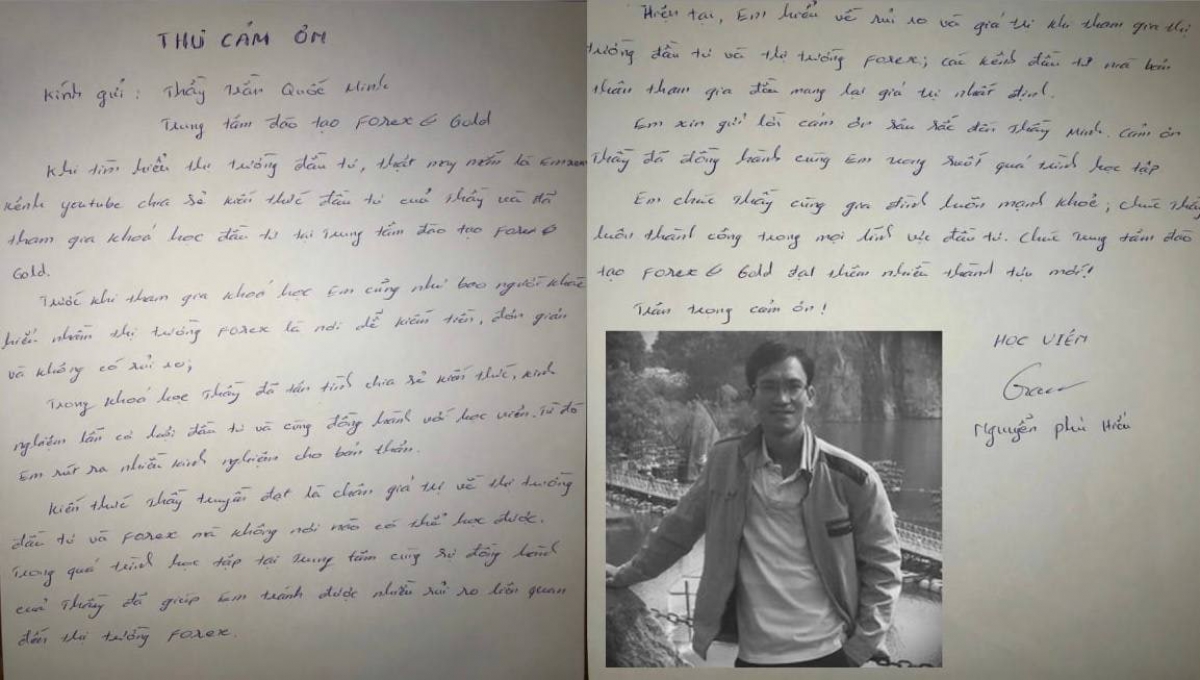 THƯ CẢM ƠN
Kính gửi: Thầy Trần Quốc Minh
Trung tâm đào tạo Forex & Gold
Khi tìm hiểu thị trường đầu tư, thật may mắn là Em xem
kênh youtube chia sẻ kiến thức đầu tư của Thầy và đã
tham gia khoá học đầu tư tại Trung tâm đào tạo Forex &
Gold.
Trước khi tham gia khoá học Em cũng như bao người khác
hiểu nhầm thị trường Forex là nơi dễ kiếm tiền, đơn giản
và không có rủi ro;
Trong khoá học Thầy đã tận tình chia sẻ kiến thức, kinh
nghiệm lẫn cơ hội đầu tư và cùng đồng hành với học viên. Từ đó
Em rút ra nhiều kinh nghiệm cho bản thân.
Kiến thức Thầy truyền đạt là chân giá trị về thị trường
đầu tư và Forex mà không nơi nào có thể học được.
Trong quá trình học tập tại Trung tâm cùng sự đồng hành
của Thầy đã giúp Em tránh được nhiều rủi ro liên quan
đến thị trường Forex.
Hiện tại, Em hiểu về rủi ro và giá trị khi tham gia thị
trường đầu tư và thị trường Forex; các kênh đầu tư mà bản
thân tham gia đều mang lại giá trị nhất định.
Em xin gửi lời cảm ơn sâu sắc đến Thầy Minh. Cảm ơn
Thầy đã đồng hành cùng Em trong suốt quá trình học tập
Em chúc Thầy cùng gia đình luôn mạnh khoẻ; chúc Thầy
luôn thành công trong mọi lĩnh vực đầu tư. Chúc Trung tâm đào
tạo Forex & Gold đạt thêm nhiều thành tựu mới!
Trân trọng cảm ơn!
HỌC VIÊN
Nguyễn Phú Hiếu